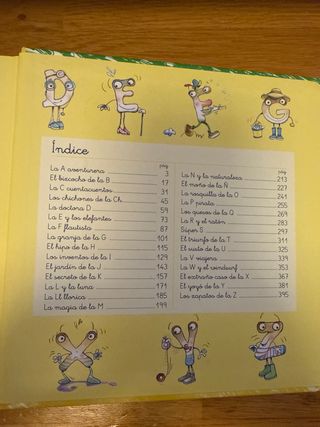 D
E
F
G
Índice
pág.
La A aventurera 3
El bizcocho de la B 17
La C cuentacuentos 31
Los chichones de la Ch 45
La doctora D 59
La E y los elefantes 73
La F flautista 87
La granja de la G 101
El hipo de la H 115
Los inventos de la I 129
El jardín de la J 143
El secreto de la K 157
La L y la luna 171
La Ll llorica 185
La magia de la M 199
pág.
La N y la naturaleza 213
El moño de la Ñ 227
La rosquilla de la O 241
La P pirata 255
Los quesos de la Q 269
La R y el ratón 283
Súper S 297
El triunfo de la T 311
El susto de la U 325
La V viajera 339
La W y el windsurf 353
El extraño caso de la X 367
El yoyó de la Y 381
Los zapatos de la Z 395
X
Y
Z